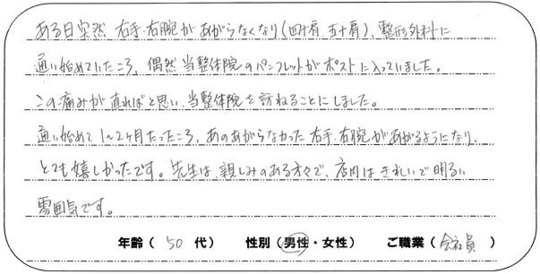 ある日突然 右手・右腕があがらなくなり(四十肩、五十肩)、整形外科に
通い始めていたころ、偶然 当整体院のパンフレットがポストに入っていました。
この痛みが直ればと思い、当整体院を訪ねることにしました。
通い始めて 1〜2ヶ月たったころ、あのあがらなかった右手・右腕があがるようになり、
とても嬉しかったです。先生は、親しみのある方々で、店内はきれいで明るい
雰囲気です。
年齢( 50 代) 性別(男性・女性) ご職業( 会社員 )